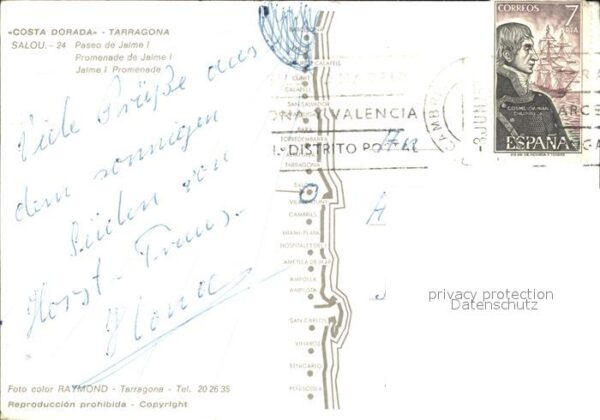 «COSTA DORADA» - TARRAGONA
SALOU. - 24 Paseo de Jaime I
Promenade de Jaime I
Jaime I Promenade
Viele Grüße aus
dem sonnigen
Süden von
Horst-Franz
CALAFELL
SAN SALVADOR
TORREDEMBARRA
TARRAGONA
SALOU
CAMBRILS
MIAMI-PLAYA
HOSPITALET
AMETLLA DE MAR
AMPOLLA
AMPOSTA
SAN CARLOS
VINAROZ
BENICARLO
PEÑISCOLA
Y VALENCIA
DISTRITO PO
8 JUN
CORREOS 7 PTA
ESPAÑA
privacy protection
Datenschutz
Foto color RAYMOND - Tarragona - Tel. 20 26 35
Reproducción prohibida - Copyright